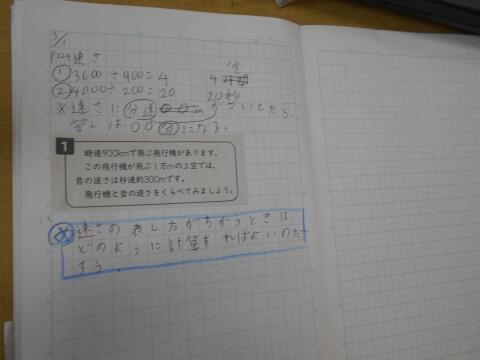 5/1
P209速さ
①3600÷900=4 4時間 分
②4000÷200=20 20秒
※速さに分速○○mがついてたら
答えは○○分になる。
1 時速900kmで飛ぶ飛行機があります。
この飛行機が飛ぶ1万mの上空では,
音の速さは秒速約300mです。
飛行機と音の速さをくらべてみましょう。
め 速さの表し方がちがうときは
どのように計算すればよいのだ
ろう.